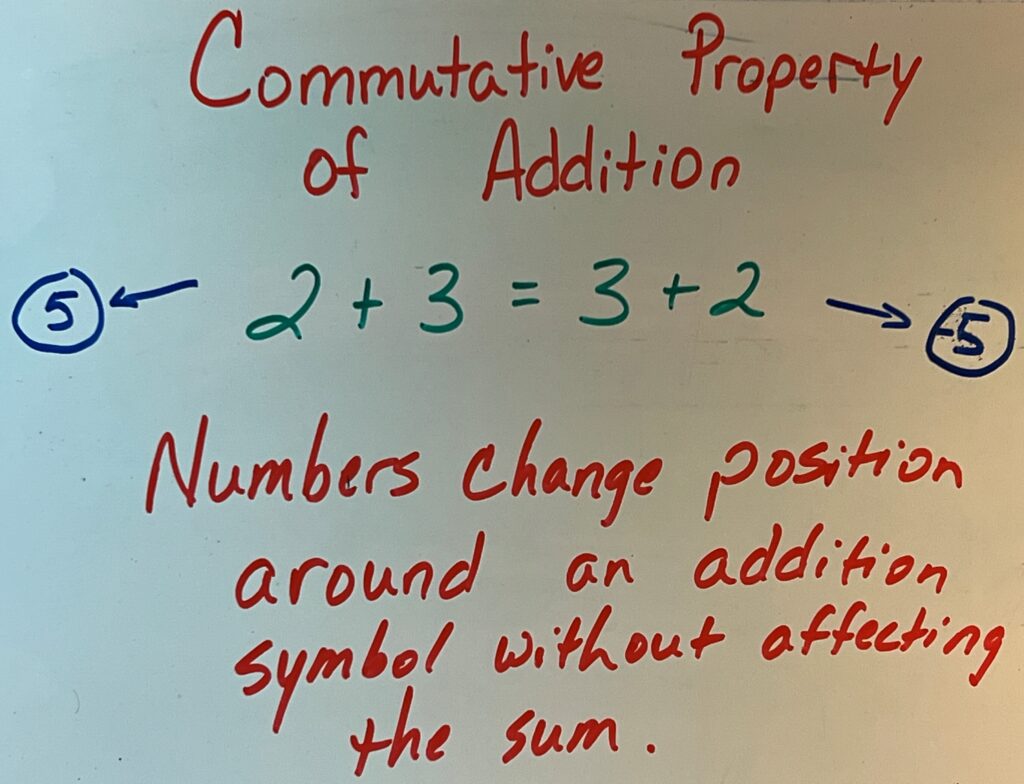 Commutative Property
of Addition
5 ← 2 + 3 = 3 + 2 → 5
Numbers change position
around an addition
symbol without affecting
the sum.